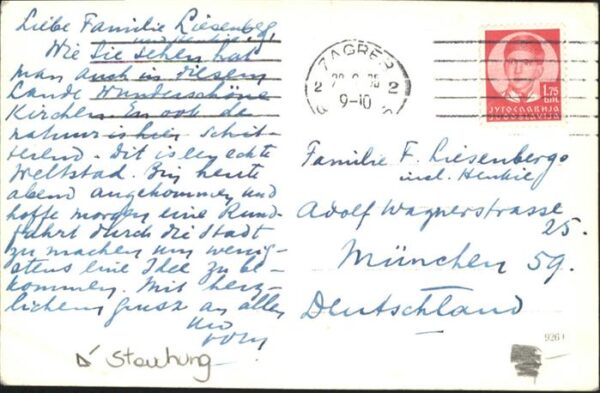 Liebe Familie Riesenberg,
und Henkie,
Wie Sie sehen hat
man auch in diesem
Lande Wunderschöne
Kirchen. En ook de
natuur is hier schit-
terend. Dit is een echte
Weltstad. Bin heute
abend angekommen und
hoffe morgen eine Rund-
fahrt durch die Stadt
zu machen um wenig-
stens eine Idee zu be-
kommen. Mit herz-
lichem grusz an allen
ZAGREB
2 2
9-10
1.75
DIN.
ЈУГОСЛАВИЈА
JUGOSLAVIJA
Familie F. Riesenberg
incl. Henkie
Adolf Wagnerstrasse
25.
München 59.
Deutschland
926